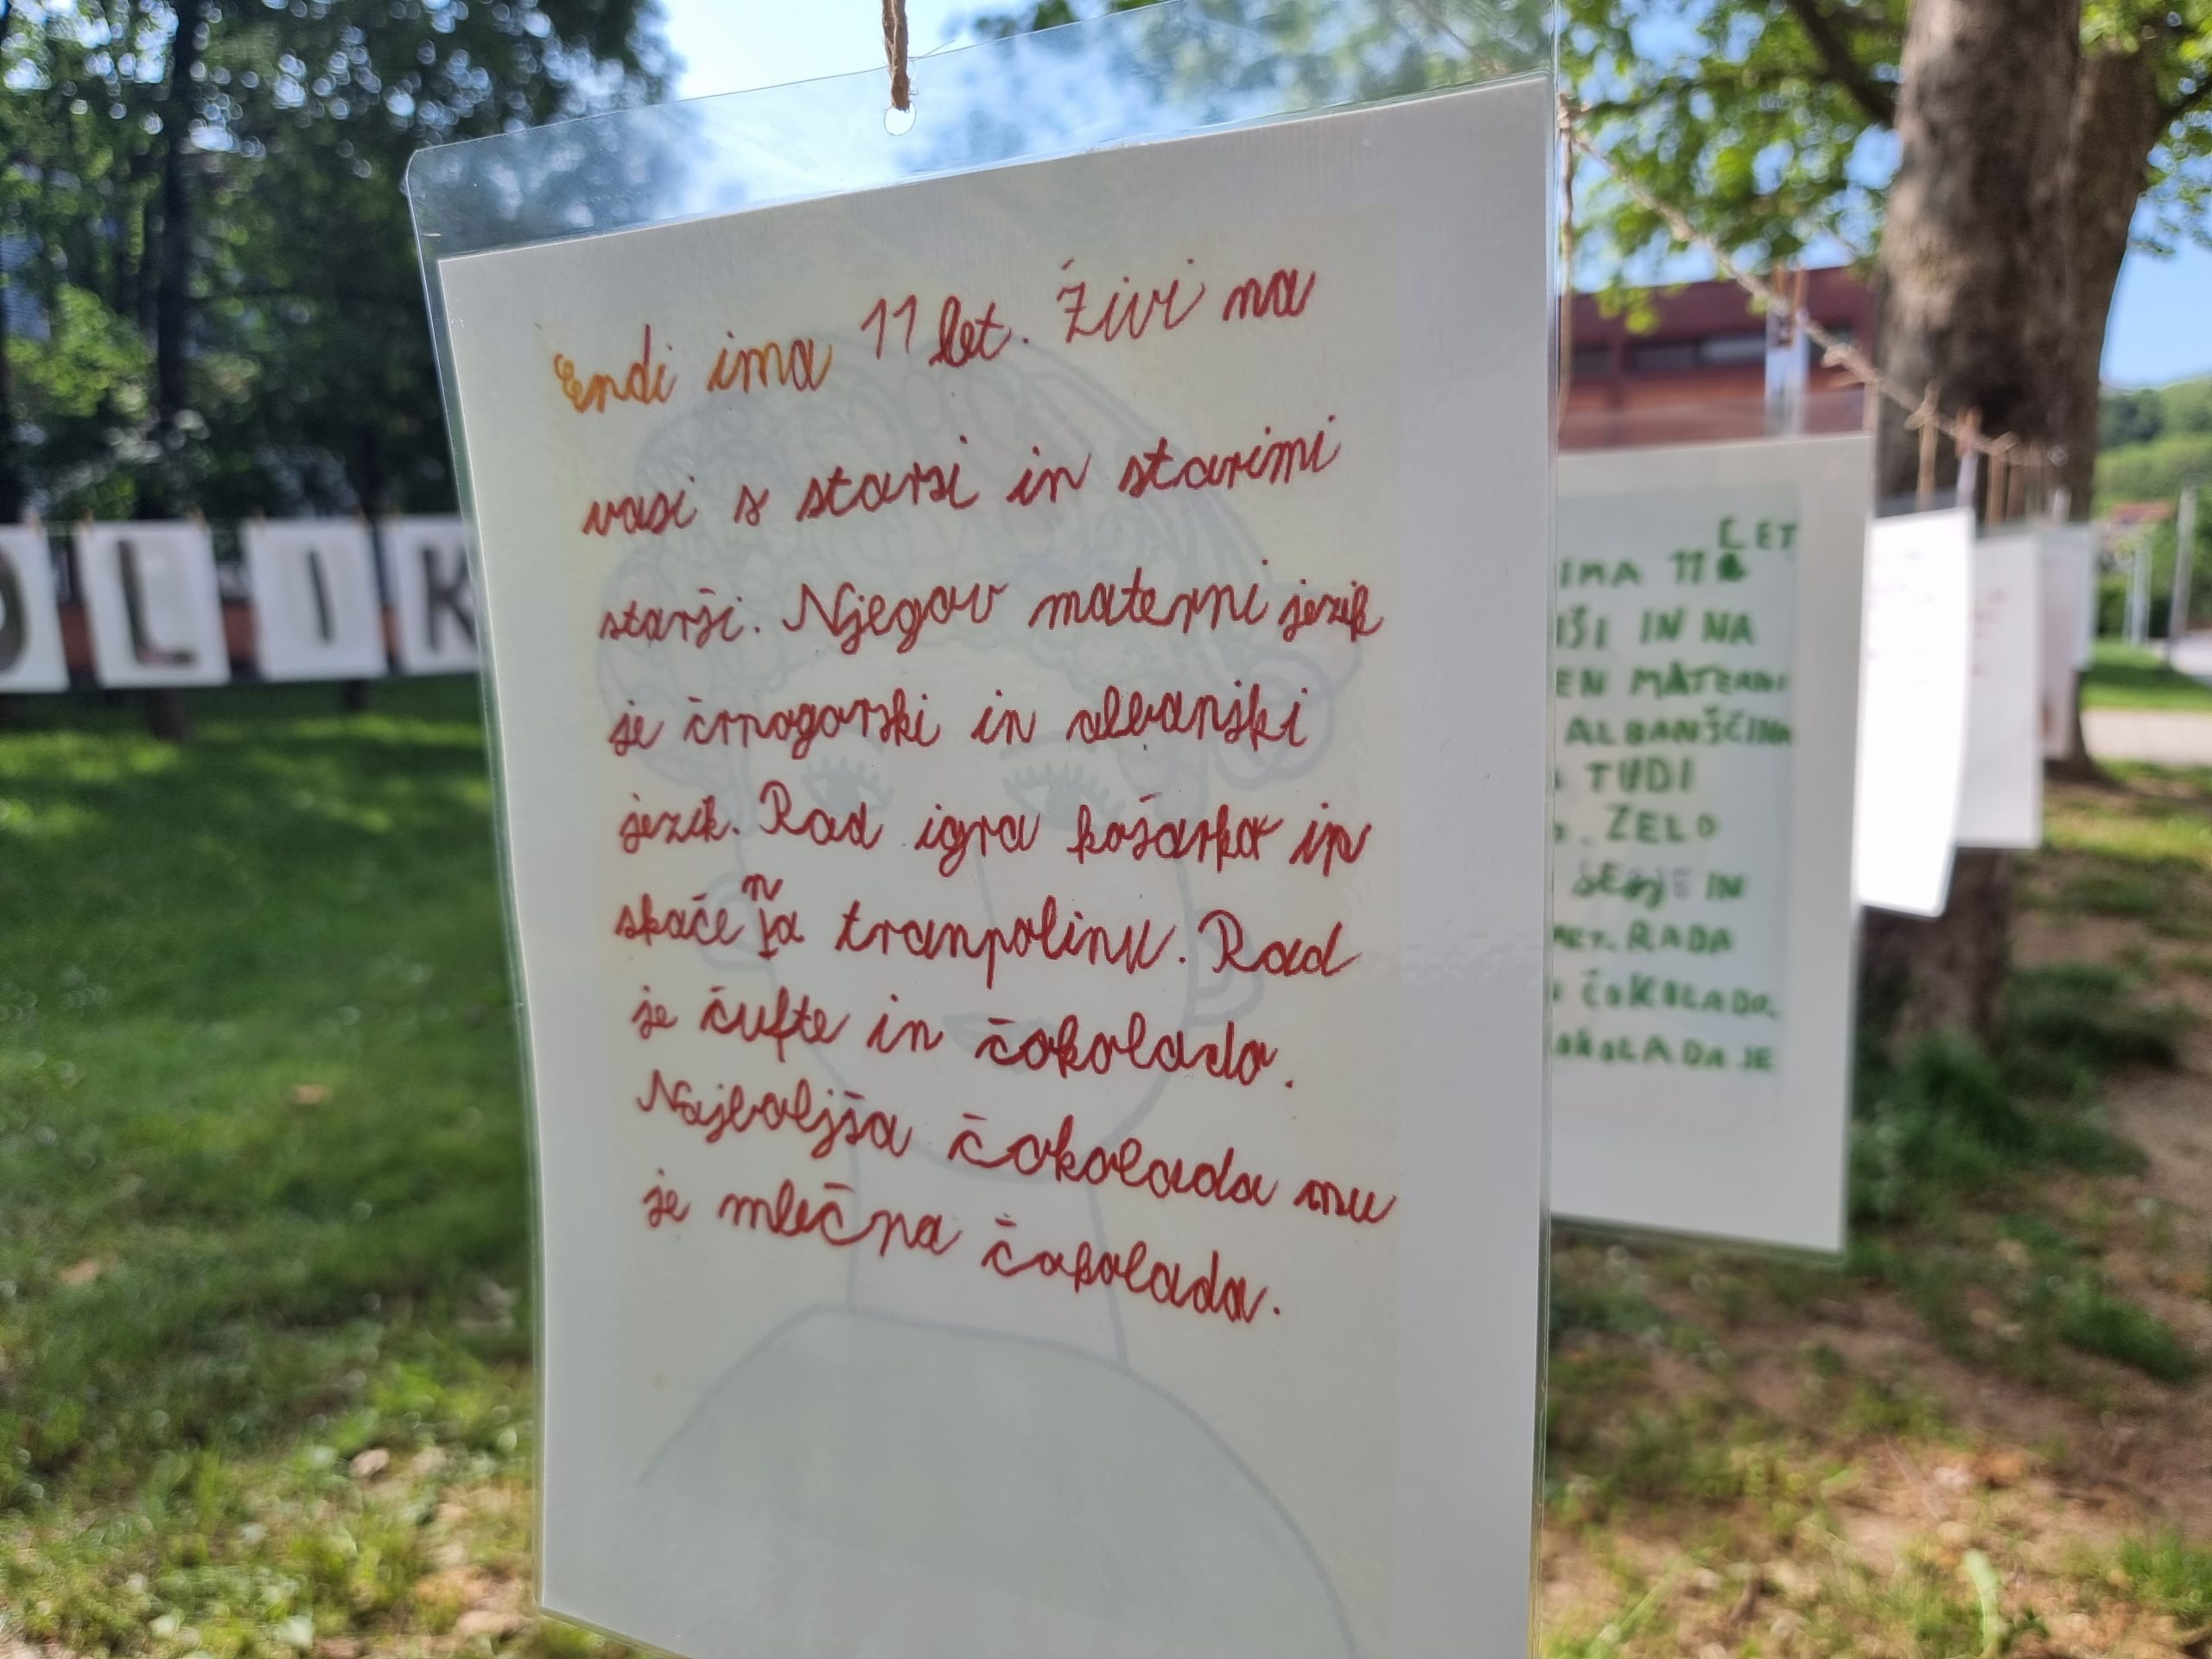 OLIK
Endi ima 11 let. Živi na
vasi s starsi in starimi
starši. Njegov materni jezik
je črnogorski in albanski
jezik. Rad igra košarko in
skače na tranpolinu. Rad
je čufte in čokolado.
Najboljša čokolada mu
je mlečna čokolada.
LET
IMA 11
IŠI IN NA
EN MATERNI
ALBANŠČINA
TUDI
ZELO
IN
RADA
ČOKOLADO.
OKOLADA JE